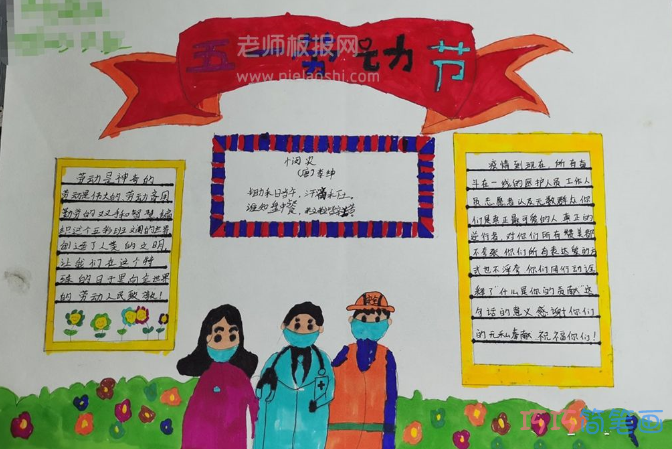 五一劳动节
老师板报网
www.pielaoshi.com
劳动是神奇的
劳动是伟大的,劳动者用
勤劳的双手和智慧,编
织这个五彩班斓的世界
创造了人类的文明,
让我们在这个特
殊的日子里向全世界
的劳动人民致敬!
悯农
(唐)李绅
锄禾日当午,汗滴禾下土。
谁知盘中餐,粒粒皆辛苦
疫情到现在,所有奋
斗在一线的医护人员工作人
员志愿者以及无数群众你
们是真正最可爱的人,真正的
逆行者,对你们所有赞美都
不夸张你们所有表达爱的方
式也不浮夸你们用行动诠
释了"什么是你的贡献"这
句话的意义感谢你们
的无私奉献祝福你们!
巧巧简笔画